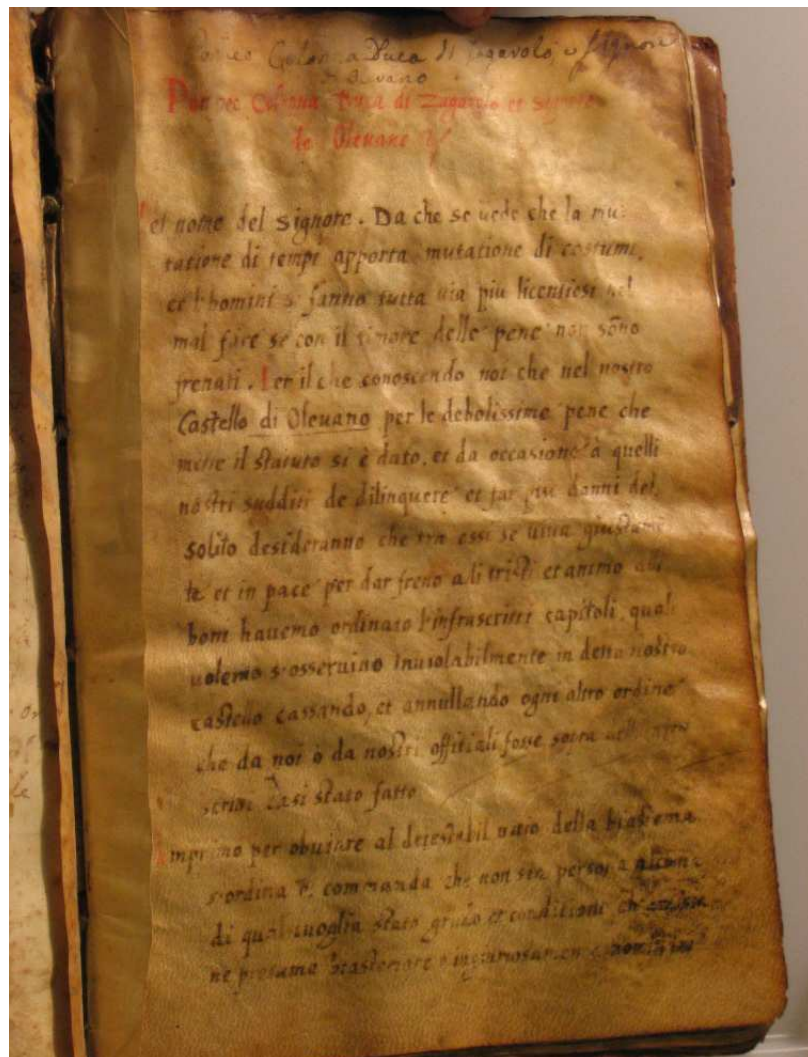 Colonna Duca di Zagarolo e Signore
Pompeo Colonna Duca di Zagarolo et Signore
de Oleuano
Nel nome del Signore. Da che se uede che la mu-
tatione di tempi apporta mutatione di costumi,
et l'homini si fanno tutta uia piu licentiosi nel
mal fare se con il timore delle pene non sono
frenati. Per il che conoscendo noi che nel nostro
Castello di Oleuano per le debolissime pene che
mette il statuto si è dato, et da occasione à quelli
nostri sudditi de dilinquere et far piu danni del
solito desideranno che tra essi se uiua giustame-
te et in pace per dar freno a li tristi et animo alli
boni hauemo ordinato l'infrascritti capitoli, quali
uolemo s'osseruino inuiolabilmente in detto nostro
castello cassando, et annullando ogni altro ordine
che da noi ò da nostri offitiali fosse sopra dell'infra
scritti casi stato fatto
Imprimo per obuiare al detestabil uitio della biastema
s'ordina et commanda che non sia persona alcuna
di qual si uoglia stato grado et conditione
ne presuma biastemare o ingiuriosamente nominare